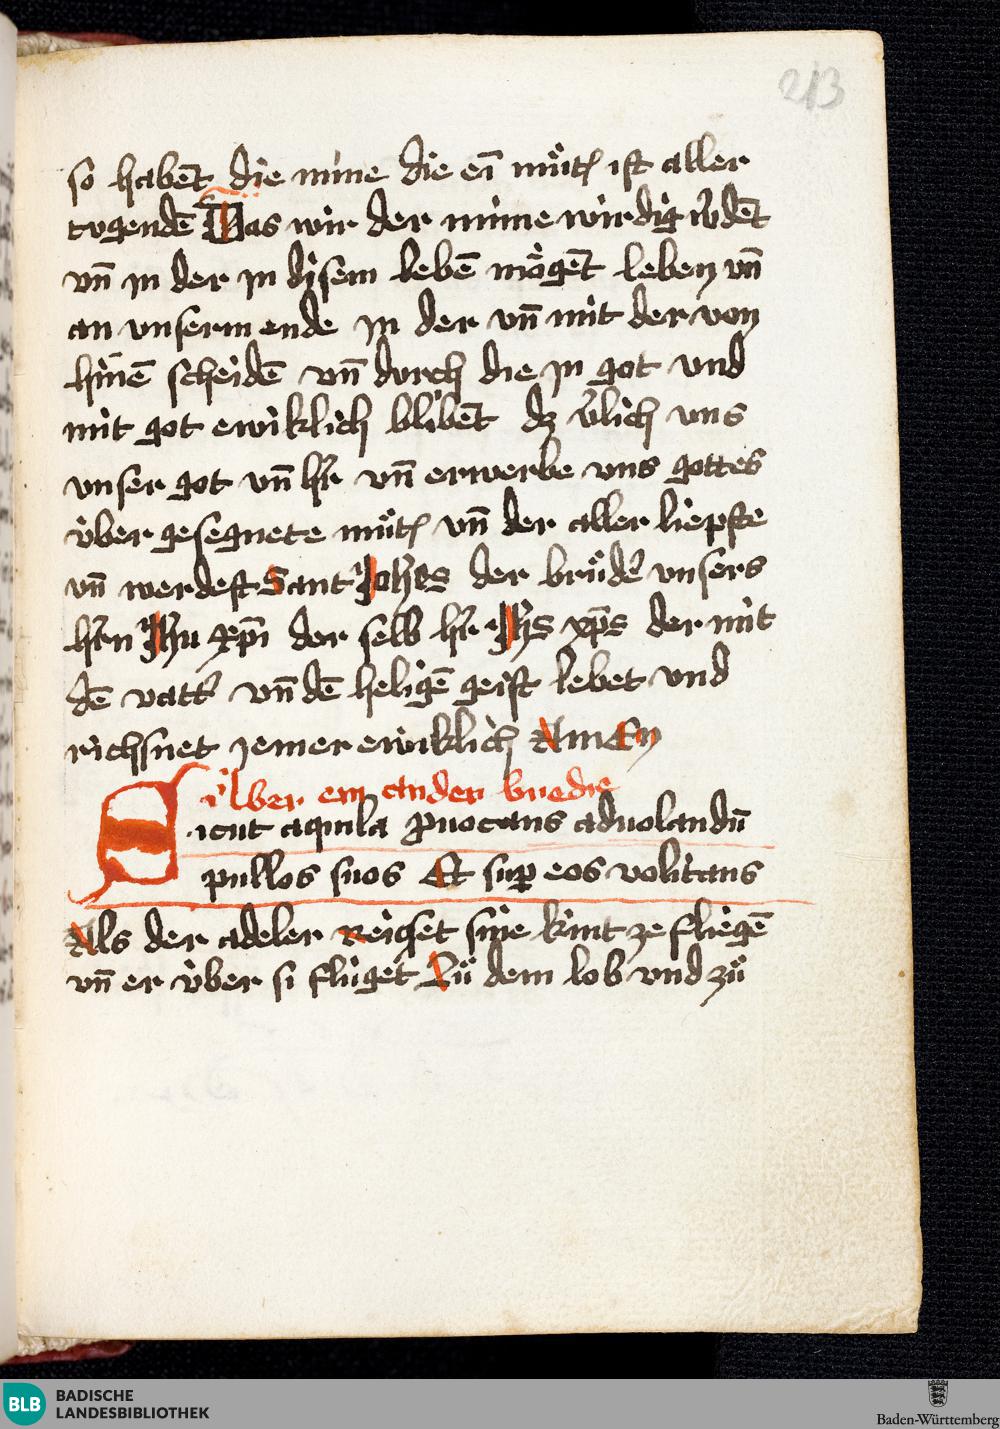 213
so habēt die mine die ei můt ist aller
tvgendē Das wir der minne wirdig wdēt
vn̄ in der in disem lebē mo̊gēt leben vn̄
an vnserm ende in der vn̄ mit der von
hinnē scheidē vn̄ dvrch die in got vnd
mit got ewiklich blibēt dz vlich vns
vnser got vn̄ hr vn̄ erwerbe vns gottes
vber gesegnete můt vn̄ der aller liepste
vn̄ werdest Sant Johes der brůder vnsers
hrn Jhu xpi der selb hr Jhs xps der mit
dē vatt vn̄ dē heligē geist lebet vnd
richsnet iemer ewiklich AmEn
Vber ein ander bredie
Sicut aquila puocans aduolandū
pullos suos Et sup eos volitans
Als der adeler reiczet sine kint ze fliegē
vn̄ er vber si flùget Zů dem lob vnd zů
BLB BADISCHE
LANDESBIBLIOTHEK
Baden-Württemberg